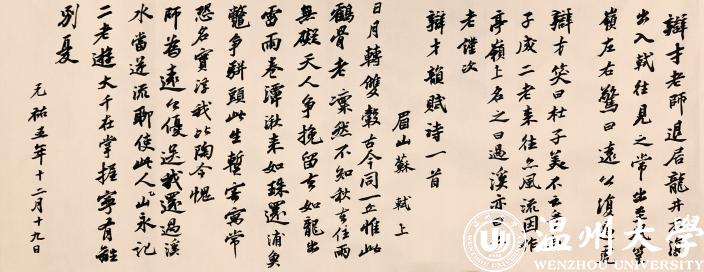 辯才老師退居龍井不復
出入軾往見之常出至風篁
嶺左右驚曰遠公復過虎
辯才笑曰杜子美不云乎
子成二老來往亦風流因作
亭嶺上名之曰過溪亦曰
老謹次
辯才韻賦詩一首
眉山蘇軾上
日月轉雙轂古今同一丘惟此
鶴骨老凜然不知秋去住兩
無礙天人爭挽留去如龍出
雷雨卷潭湫來如珠還浦魚
鱉爭駢頭此生暫寄寓常
恐名實浮我比陶令愧
師為遠公優送我還過溪
水當逆流聊使此人山永記
二老遊大千在掌握寧有離
別憂
元祐五年十二月十九日
温州大學
WENZHOU UNIVERSITY